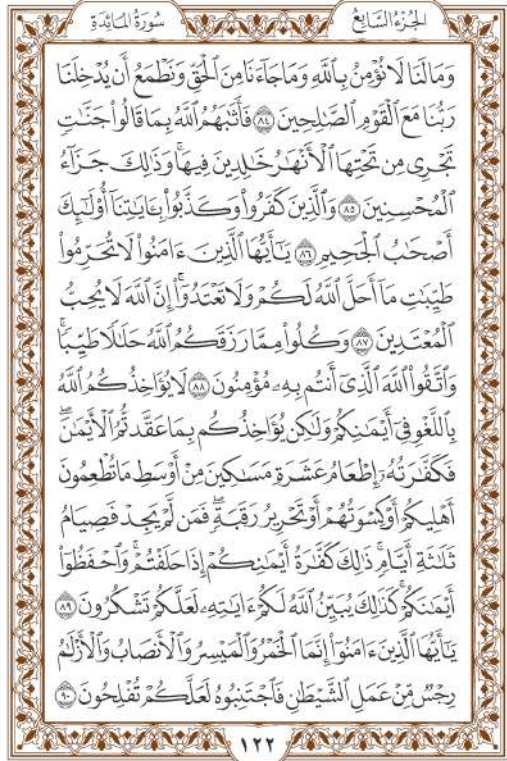 الجُزْءُ السَّابِعُ
سُورَةُ المَائِدَةِ
وَمَالَنَا لَا نُؤْمِنُ بِٱللَّهِ وَمَاجَآءَنَا مِنَ ٱلْحَقِّ وَنَطْمَعُ أَن يُدْخِلَنَا
رَبُّنَا مَعَ ٱلْقَوْمِ ٱلصَّٰلِحِينَ ٨٤ فَأَثَٰبَهُمُ ٱللَّهُ بِمَا قَالُوا۟ جَنَّٰتٍ
تَجْرِى مِن تَحْتِهَا ٱلْأَنْهَٰرُ خَٰلِدِينَ فِيهَا ۚ وَذَٰلِكَ جَزَآءُ
ٱلْمُحْسِنِينَ ٨٥ وَٱلَّذِينَ كَفَرُوا۟ وَكَذَّبُوا۟ بِـَٔايَٰتِنَآ أُو۟لَٰٓئِكَ
أَصْحَٰبُ ٱلْجَحِيمِ ٨٦ يَٰٓأَيُّهَا ٱلَّذِينَ ءَامَنُوا۟ لَا تُحَرِّمُوا۟
طَيِّبَٰتِ مَآ أَحَلَّ ٱللَّهُ لَكُمْ وَلَا تَعْتَدُوٓا۟ ۚ إِنَّ ٱللَّهَ لَا يُحِبُّ
ٱلْمُعْتَدِينَ ٨٧ وَكُلُوا۟ مِمَّا رَزَقَكُمُ ٱللَّهُ حَلَٰلًا طَيِّبًا ۚ
وَٱتَّقُوا۟ ٱللَّهَ ٱلَّذِىٓ أَنتُم بِهِۦ مُؤْمِنُونَ ٨٨ لَا يُؤَاخِذُكُمُ ٱللَّهُ
بِٱللَّغْوِ فِىٓ أَيْمَٰنِكُمْ وَلَٰكِن يُؤَاخِذُكُم بِمَا عَقَّدتُّمُ ٱلْأَيْمَٰنَ ۖ
فَكَفَّٰرَتُهُۥٓ إِطْعَامُ عَشَرَةِ مَسَٰكِينَ مِنْ أَوْسَطِ مَا تُطْعِمُونَ
أَهْلِيكُمْ أَوْ كِسْوَتُهُمْ أَوْ تَحْرِيرُ رَقَبَةٍ ۖ فَمَن لَّمْ يَجِدْ فَصِيَامُ
ثَلَٰثَةِ أَيَّامٍ ۚ ذَٰلِكَ كَفَّٰرَةُ أَيْمَٰنِكُمْ إِذَا حَلَفْتُمْ ۚ وَٱحْفَظُوٓا۟
أَيْمَٰنَكُمْ ۚ كَذَٰلِكَ يُبَيِّنُ ٱللَّهُ لَكُمْ ءَايَٰتِهِۦ لَعَلَّكُمْ تَشْكُرُونَ ٨٩
يَٰٓأَيُّهَا ٱلَّذِينَ ءَامَنُوٓا۟ إِنَّمَا ٱلْخَمْرُ وَٱلْمَيْسِرُ وَٱلْأَنصَابُ وَٱلْأَزْلَٰمُ
رِجْسٌ مِّنْ عَمَلِ ٱلشَّيْطَٰنِ فَٱجْتَنِبُوهُ لَعَلَّكُمْ تُفْلِحُونَ ٩٠
١٢٢